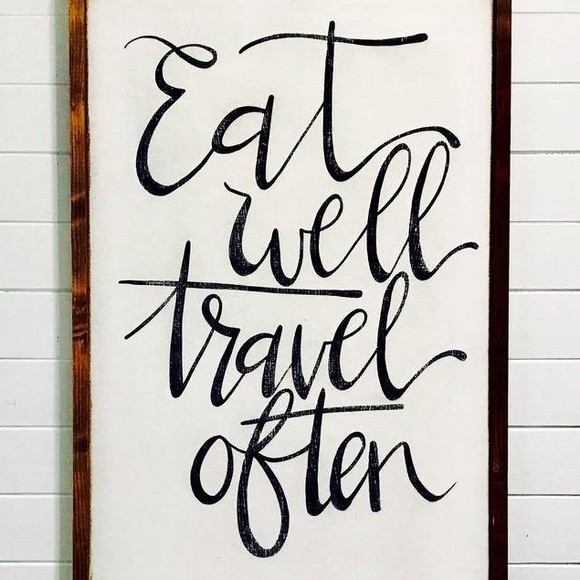 Eat
well
travel
often